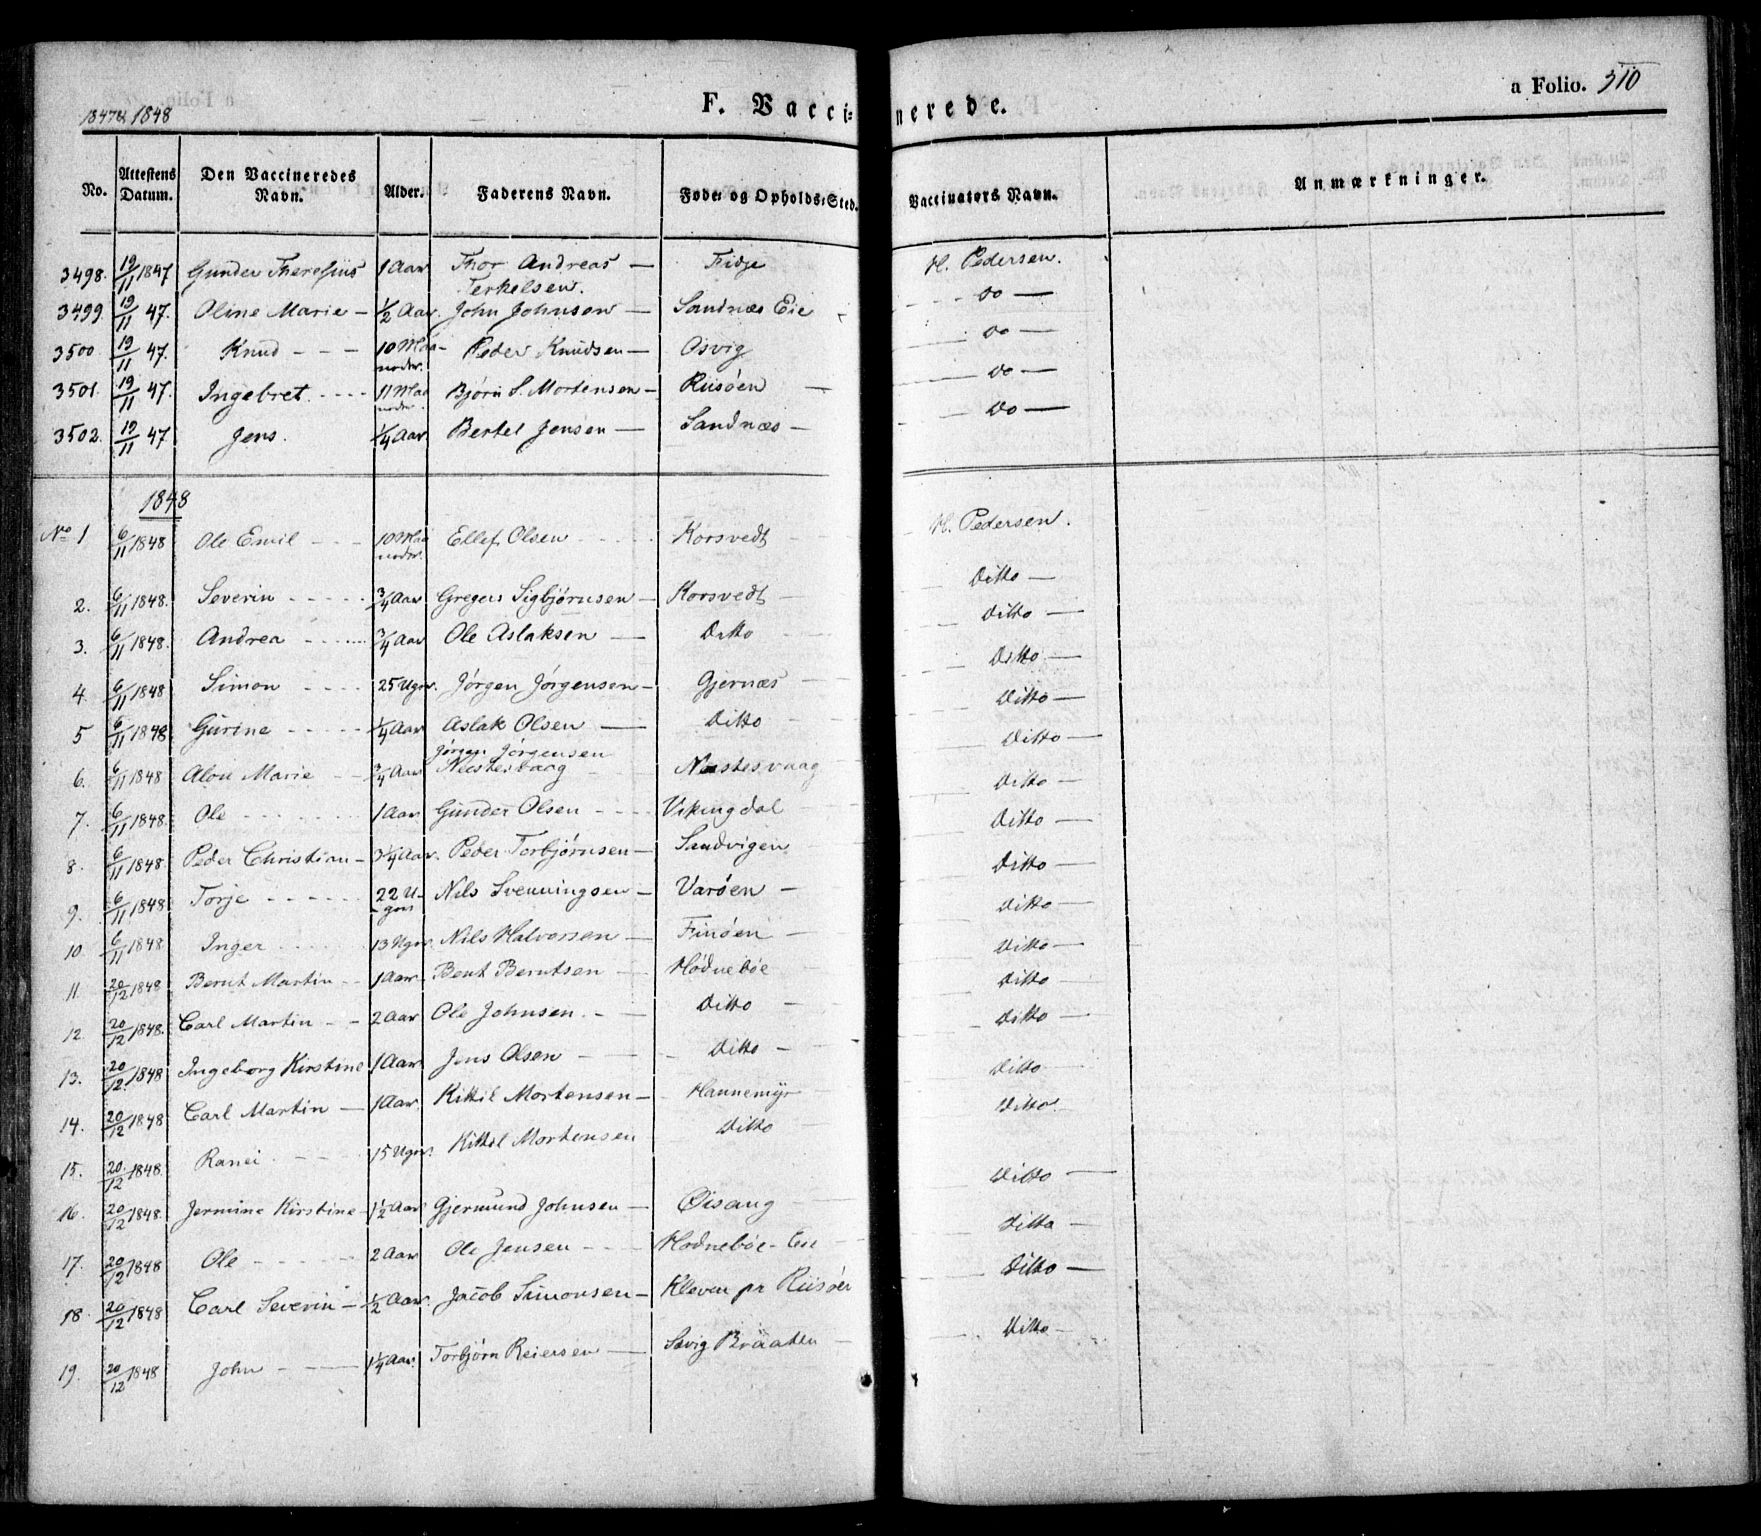 1847 & 1848
F. Vaccinerede.
a Folio. 310
No.
Attestens Datum.
Den Vaccineredes Navn.
Alder.
Faderens Navn.
Føde- og Opholds-Sted.
Vaccinators Navn.
Anmærkninger.
3498. 19/11 1847 Gunder 1 Aar Thor Andreas Terkelsen. — H. Pedersen.
3499. 19/11 47. Oline Marie — 1/2 Aar. John Johnsen — Sandnæs Eie — do —
3500. 19/11 47. Knud — — — 10 Maanoder. Peder Knudsen — Osvig — do —
3501. 19/11 47. Ingebret. — — — 11 Maanoder. Bjørn S. Mortensen — Riisøen — — do —
3502. 19/11 47 Jens. 1/4 Aar Bertel Jensen — Sandnæs — — do —
1848
No 1 6/11 1848 Ole Emil — — 10 Maanoder. Ellef Olsen — — — Korsvedt — H. Pedersen.
2. 6/11 1848. Severin — — — — 3/4 Aar Gregers Sigbjørnsen — Korsvedt — Ditto —
3. 6/11 1848. Andrea — — — 3/4 Aar Ole Aslaksen — Ditto — Ditto —
4. 6/11 1848 Simon — — — 25 Uger. Jørgen Jørgensen — Gjernæs — Ditto —
5 6/11 1848 Gurine — — — 1/4 Aar Aslak Olsen — Ditto — Ditto —
6. 6/11 1848 Marie — — 3/4 Aar Jørgen Jørgensen Nestesvaag — Nestesvaag — Ditto —
7. 6/11 1848. Ole — — — 1 Aar Gunder Olsen — — — Vikingdal — Ditto —
8. 6/11 1848 Peder Christian — 3 1/4 Aar. Peder Torbjørnsen — Sandvigen — Ditto —
9. 6/11 1848 Torje — — — — 22 Uger Nils Svenningsen — Varøen — Ditto —
10. 6/11 1848 Inger — — — 13 Uger. Nils Halvorsen — Finøen — Ditto —
11. 20/12 1848 Bernt Martin — — 1 Aar Bent Berntsen — Hødnebøe — Ditto —
12. 20/12 1848. Carl Martin — — 2 Aar Ole Johnsen. — — Ditto — Ditto —
13. 20/12 1848 Ingeborg Kirstine 1 Aar Jens Olsen — — — Ditto — Ditto —
14. 20/12 1848 Carl Martin — 1 Aar Kittil Mortensen — Hannemyr — Ditto
15. 20/12 1848. Ranei — — — 15 Uger. Kittil Mortensen — Ditto — Ditto —
16. 20/12 1848. Jermine Kirstine — 1 1/2 Aar Gjermund Johnsen — Øisang — Ditto —
17. 20/12 1848 Ole — — — 2 Aar Ole Jensen — — — Hødnebøe - Eie — Ditto —
18. 20/12 1848 Carl Severin — 1/2 Aar. Jacob Simonsen — Kleven pr Riisøer — Ditto —
19. 20/12 1848 John — — — 1 1/4 Aar. Torbjørn Reiersen — Sævig Braaten — Ditto —